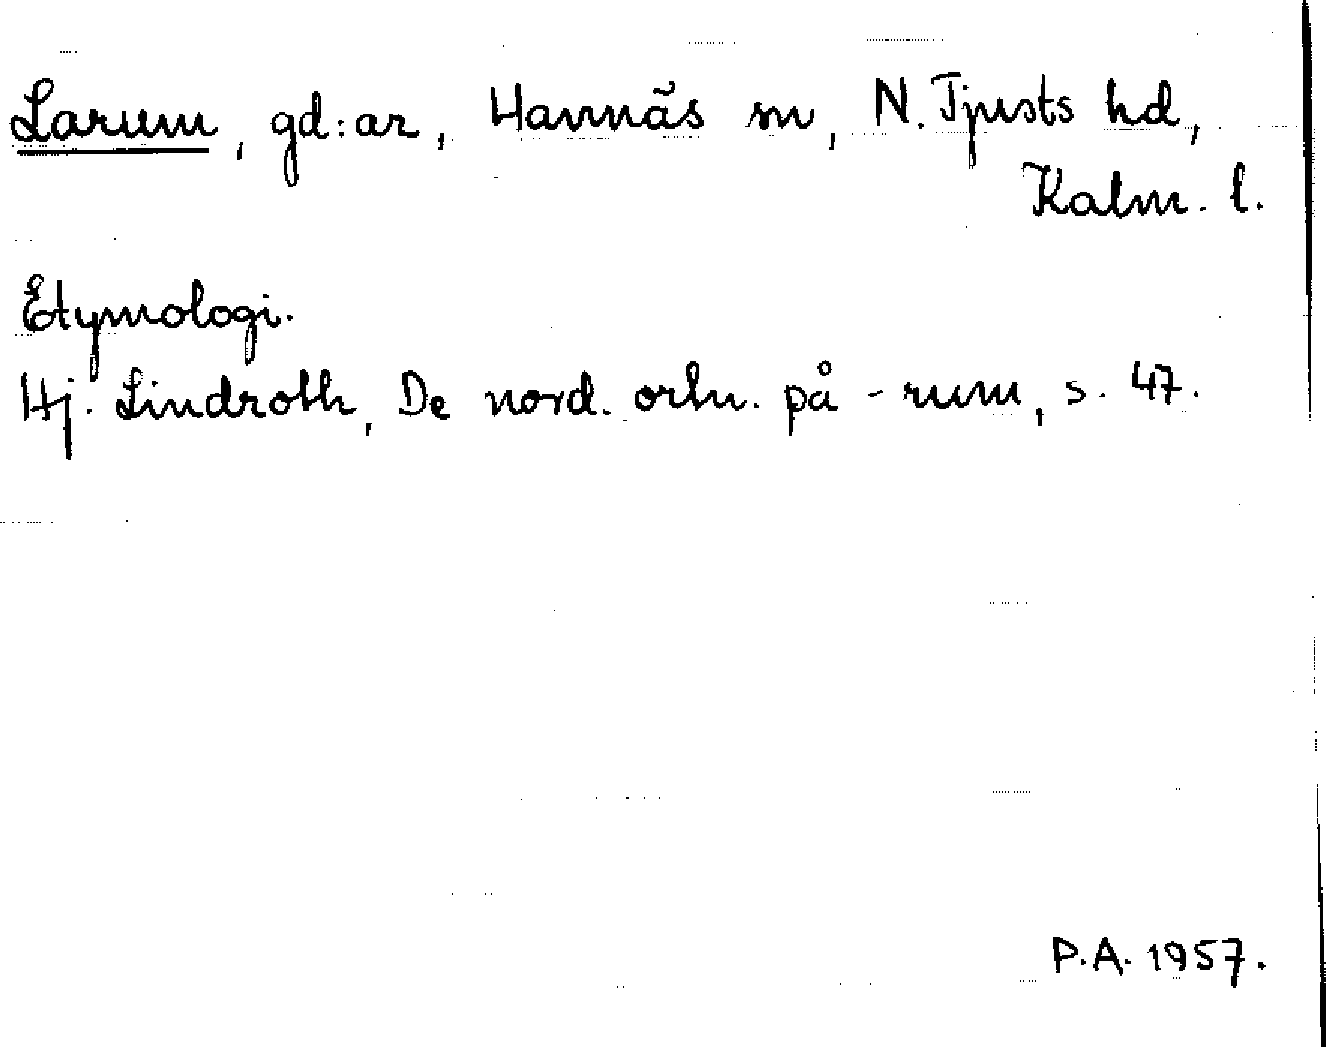 Larum, gd:ar, Hannäs sn, N. Tjusts hd,
Kalm. l.
Etymologi.
Hj. Lindroth, De nord. ortn. på -rum, s. 47.
P.A. 1957.